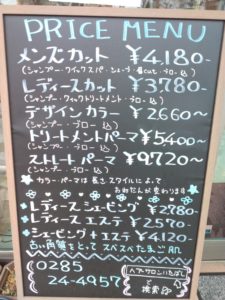 PRICE MENU
メンズカット ¥4,180-
(シャンプー・クイックスパ・シェーブ・眉cut・ブロー込)
レディースカット ¥3780-
(シャンプー・クイックトリートメント・ブロー込)
デザインカラー ¥2660~
(シャンプー・ブロー込)
トリートメントパーマ ¥5400~
(シャンプー・ブロー込)
ストレートパーマ ¥9720~
(シャンプー・ブロー込)
カラー・パーマは長さ スタイルによって
おねだんが変わります
レディースシェービング ¥2780-
レディースエステ ¥2570-
シェービング+エステ ¥4,120-
古い角質をとって スベスベたまご肌
0285
24-4957
で
検索